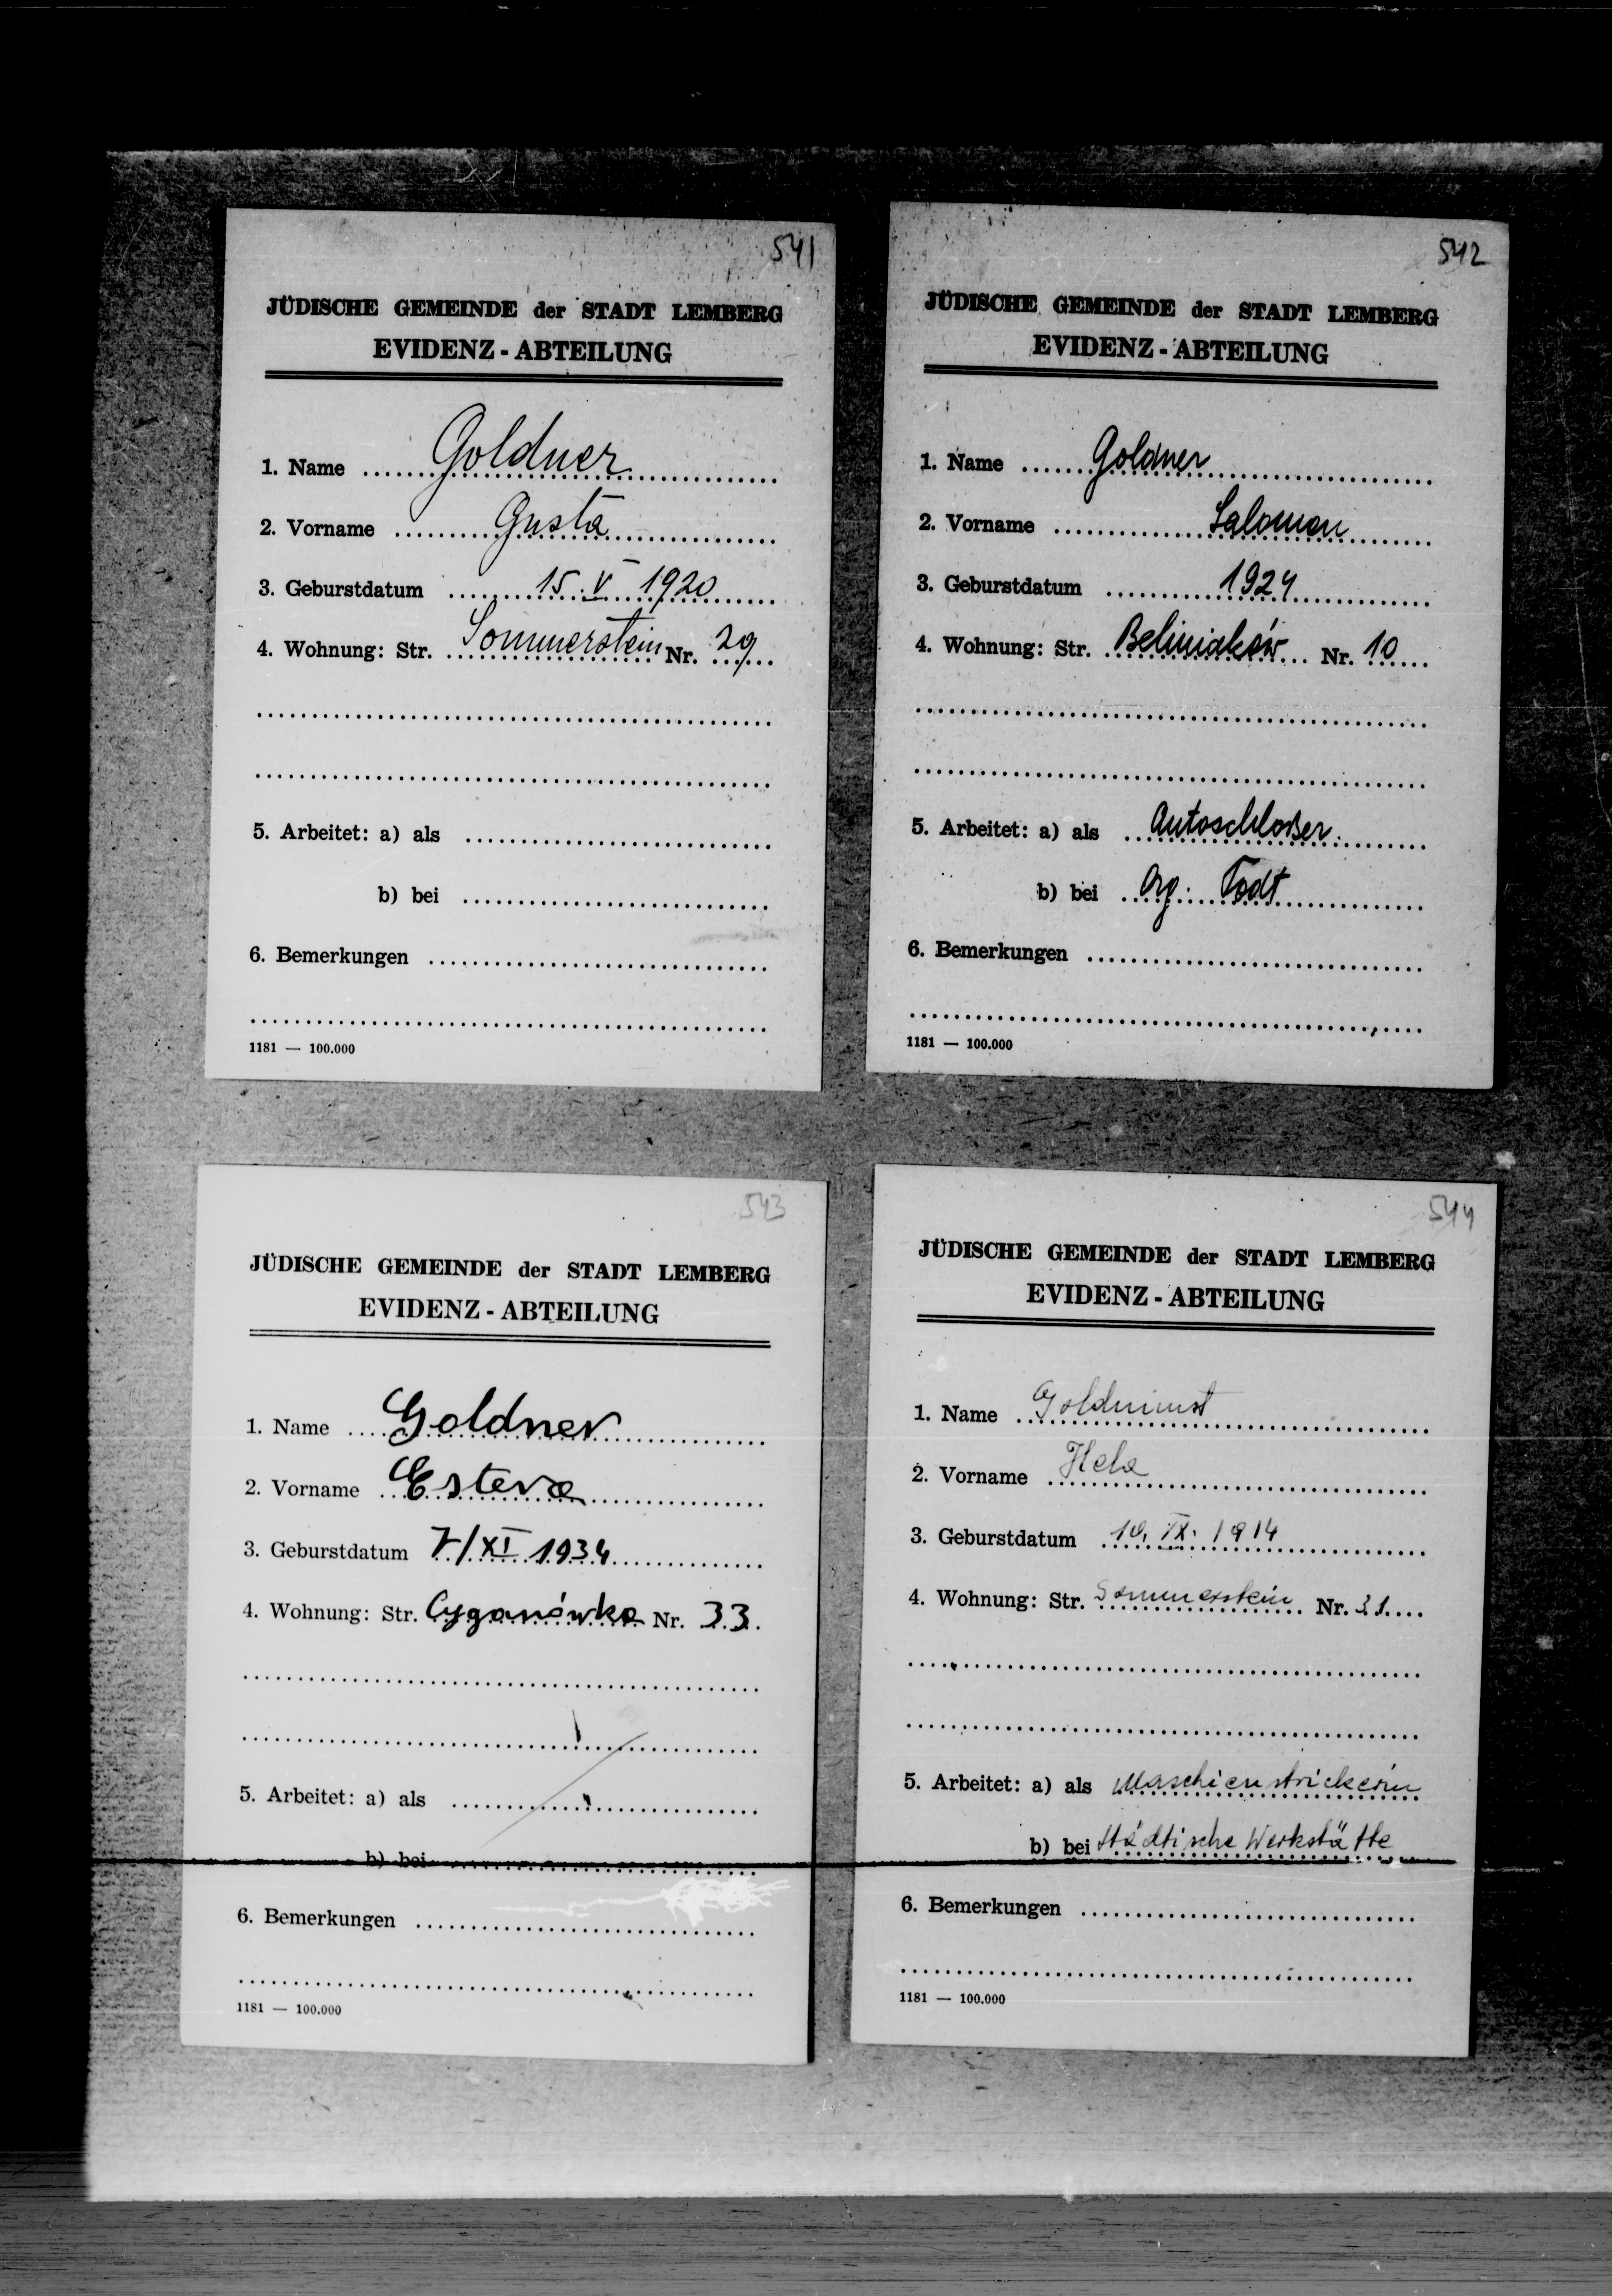 541
JÜDISCHE GEMEINDE der STADT LEMBERG
EVIDENZ - ABTEILUNG
1. Name Goldner
2. Vorname Gusta
3. Geburstdatum 15. V 1920
4. Wohnung: Str. Sommerstein Nr. 29
5. Arbeitet: a) als
b) bei
6. Bemerkungen
1181 — 100.000
542
JÜDISCHE GEMEINDE der STADT LEMBERG
EVIDENZ - ABTEILUNG
1. Name Goldner
2. Vorname Salomon
3. Geburstdatum 1924
4. Wohnung: Str. Beliniaków Nr. 10
5. Arbeitet: a) als Autoschloßer.
b) bei Org. Todt
6. Bemerkungen
1181 — 100.000
543
JÜDISCHE GEMEINDE der STADT LEMBERG
EVIDENZ - ABTEILUNG
1. Name Goldner
2. Vorname Estera
3. Geburstdatum 7/XI 1934
4. Wohnung: Str. Cyganówka Nr. 33
5. Arbeitet: a) als
b) bei
6. Bemerkungen
1181 — 100.000
544
JÜDISCHE GEMEINDE der STADT LEMBERG
EVIDENZ - ABTEILUNG
1. Name
2. Vorname Hela
3. Geburstdatum 10. IX. 1914
4. Wohnung: Str. Sommerstein Nr. 31
5. Arbeitet: a) als Maschienstrickerin
b) bei Städtische Werkstätte
6. Bemerkungen
1181 — 100.000